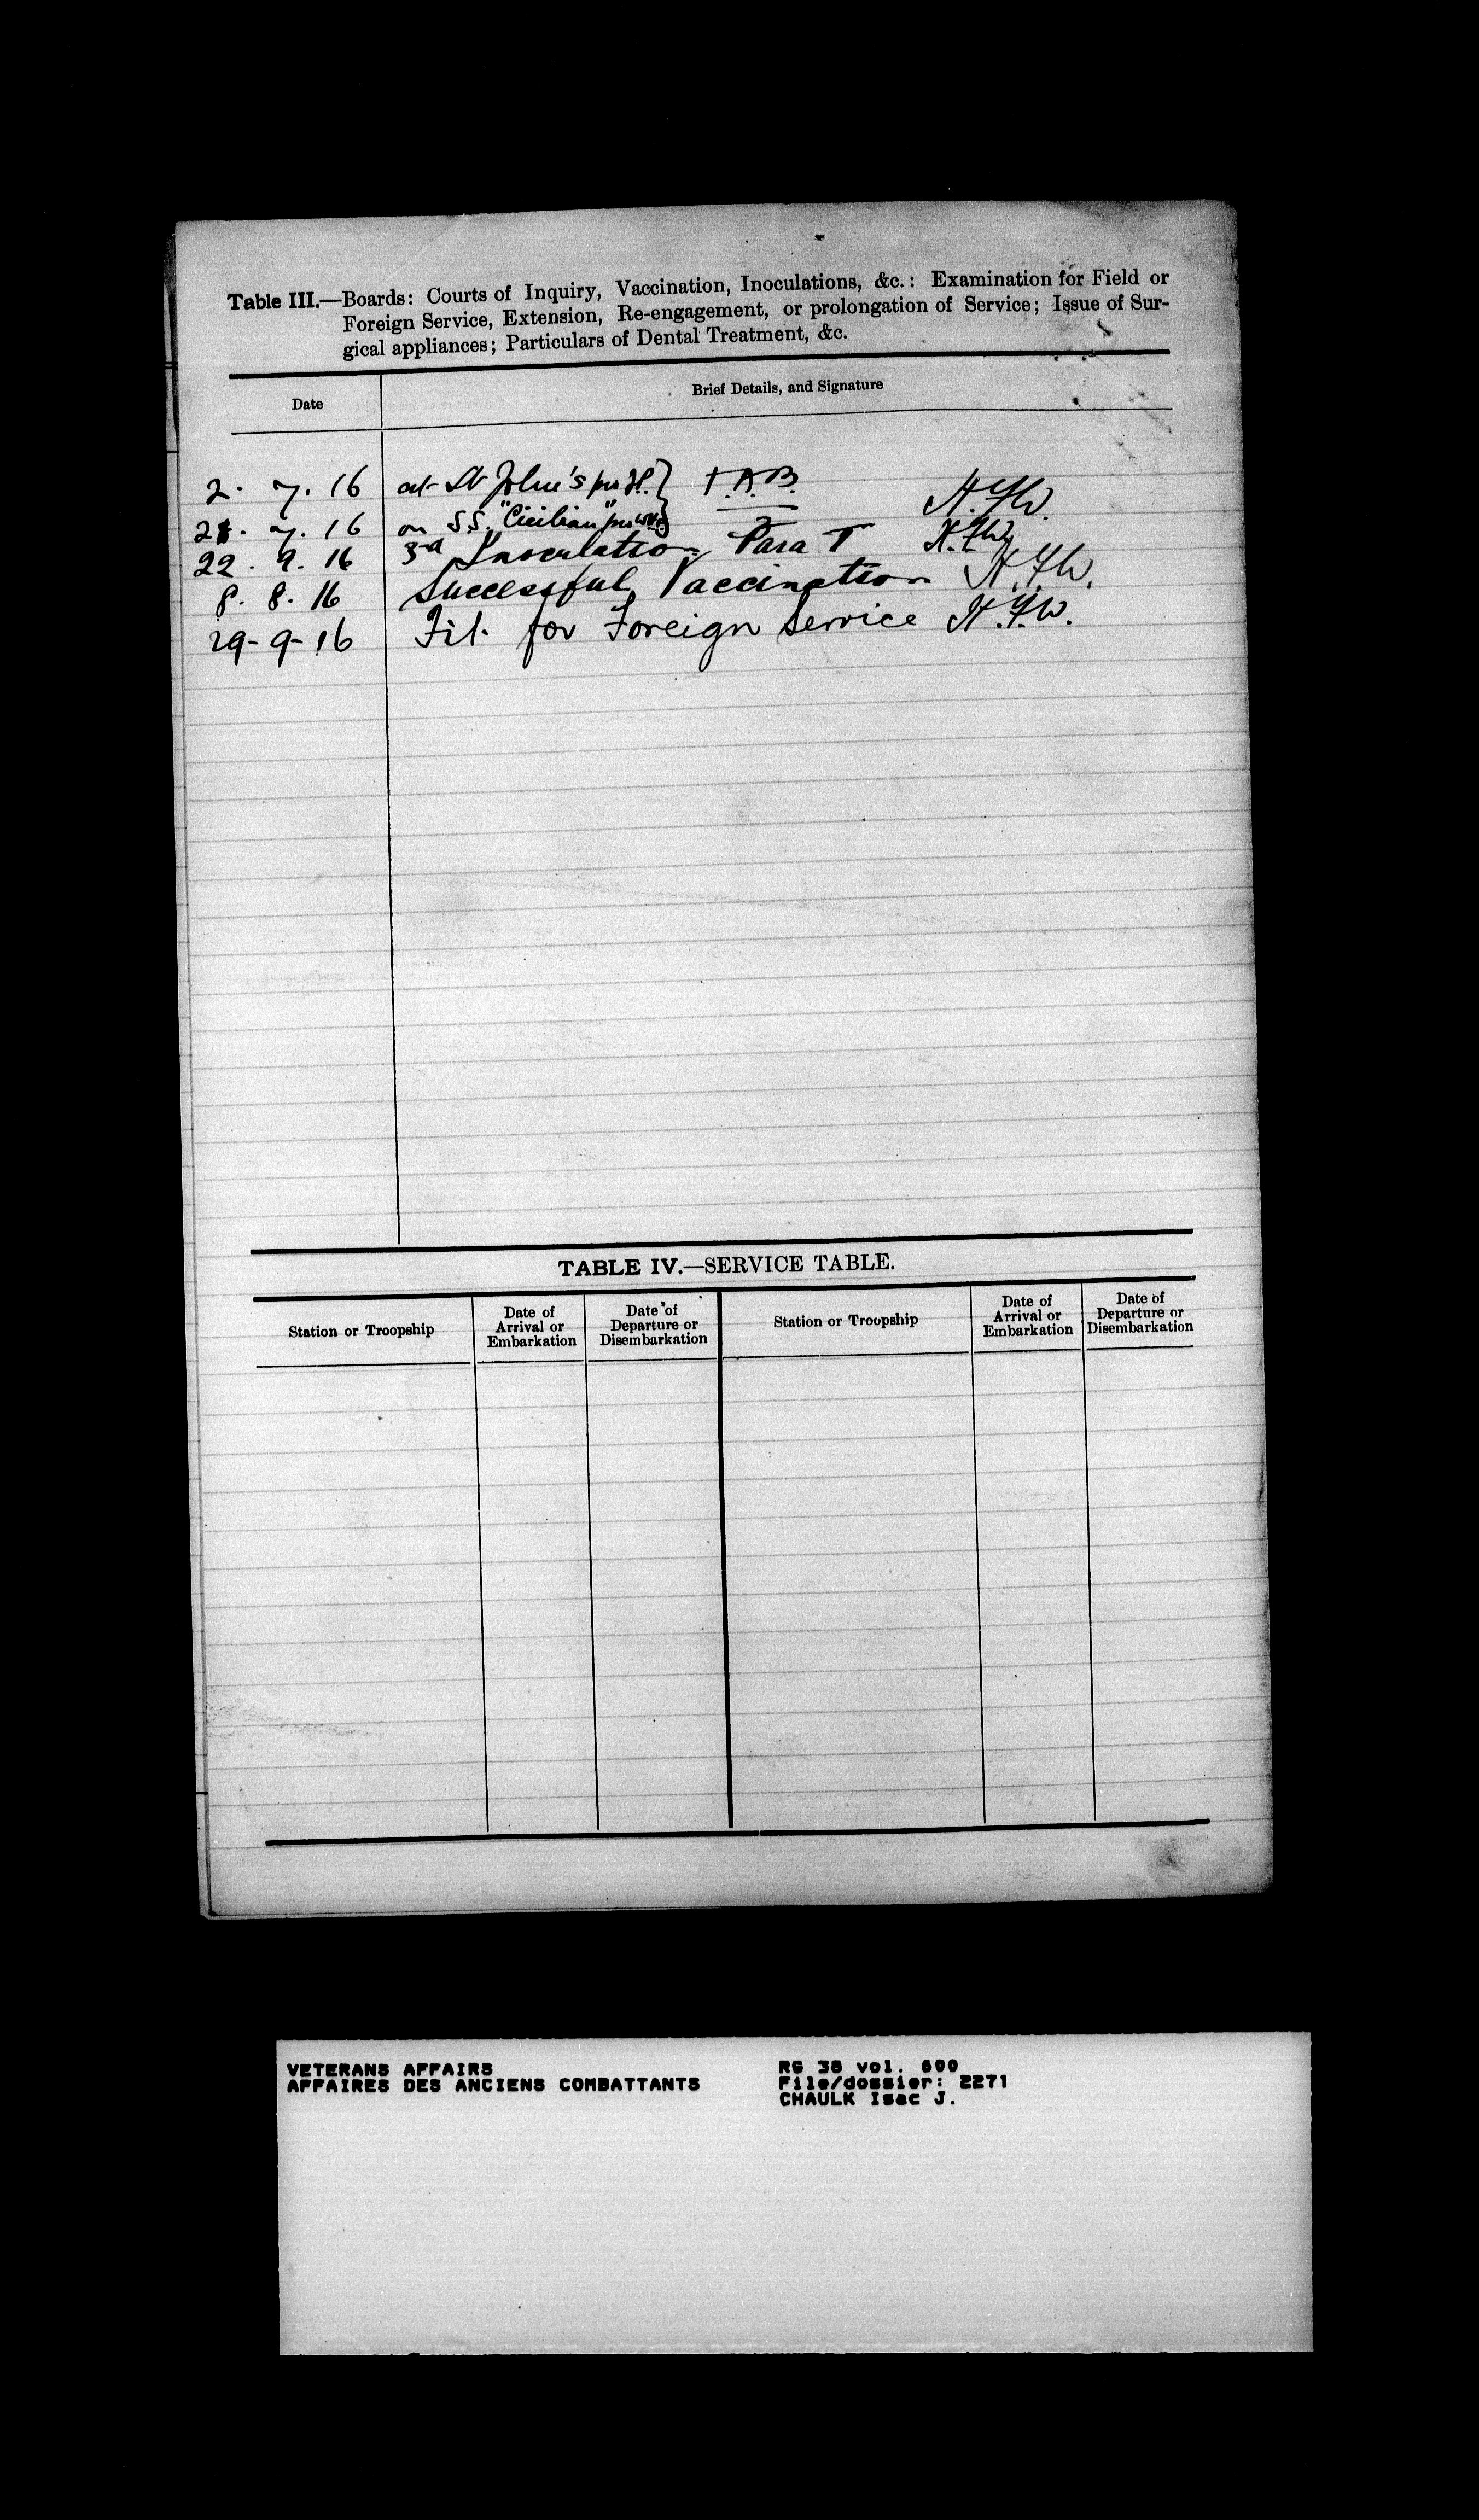 Table III.—Boards: Courts of Inquiry, Vaccination, Inoculations, &c.: Examination for Field or
Foreign Service, Extension, Re-engagement, or prolongation of Service; Issue of Sur-
gical appliances; Particulars of Dental Treatment, &c.
Date Brief Details, and Signature
2. 7. 16 at St John's } T.A.B. H.F.W.
28. 7. 16 on S.S. "Cicilian"
22. 9. 16 3rd Inoculation Para T H.F.W.
8. 8. 16 Successful Vaccination H.F.W.
29-9-16 Fit for Foreign Service H.F.W.
TABLE IV.—SERVICE TABLE.
Station or Troopship Date of Arrival or Embarkation Date of Departure or Disembarkation Station or Troopship Date of Arrival or Embarkation Date of Departure or Disembarkation
VETERANS AFFAIRS RG 38 vol. 600
AFFAIRES DES ANCIENS COMBATTANTS File/dossier: 2271
CHAULK Isac J.